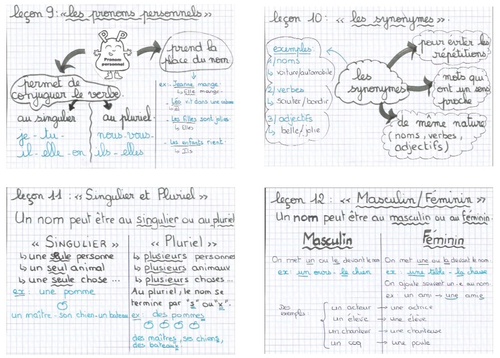 leçon 9: « les pronoms personnels »
Pronom
personnel
prend la
place du nom
permet de
conjuguer le verbe
au singulier
je - tu -
il - elle - on
au pluriel
nous - vous -
ils - elles
ex: Jeanne mange.
↳ Elle mange.
Léo vit dans une
↳ Il
Les filles sont jolies
↳ Elles
Les enfants rient
↳ Ils
leçon 10: « les synonymes ».
exemples:
1/noms
↳ voiture/automobile
2/verbes
↳ sauter/bondir
3/adjectifs
↳ belle/jolie
les
synonymes
pour éviter les
répétitions
mots qui
ont un sens
proche
de même nature
(noms, verbes,
adjectifs)
leçon 11: « Singulier et Pluriel »
Un nom peut être au singulier ou au pluriel
« SINGULIER »
↳ une seule personne
↳ un seul animal
↳ une seule chose ...
ex: une pomme
un maître, son chien, un bateau
« Pluriel »
↳ plusieurs personnes
↳ plusieurs animaux
↳ plusieurs choses ...
Au pluriel, le nom se
termine par "s" ou "x".
ex: des pommes
des maîtres, ses chiens,
des bateaux
leçon 12: « Masculin/Féminin »
Un nom peut être au masculin ou au féminin.
Masculin
On met un ou le devant le nom
ex: un ours - le chien
Féminin
On met une ou la devant le nom
ex: une table - la chaise
On ajoute souvent un -e au nom
ex: un ami → une amie
Des
exemples
un acteur → une actrice
un élève → une élève
un chanteur → une chanteuse
un coq → une poule